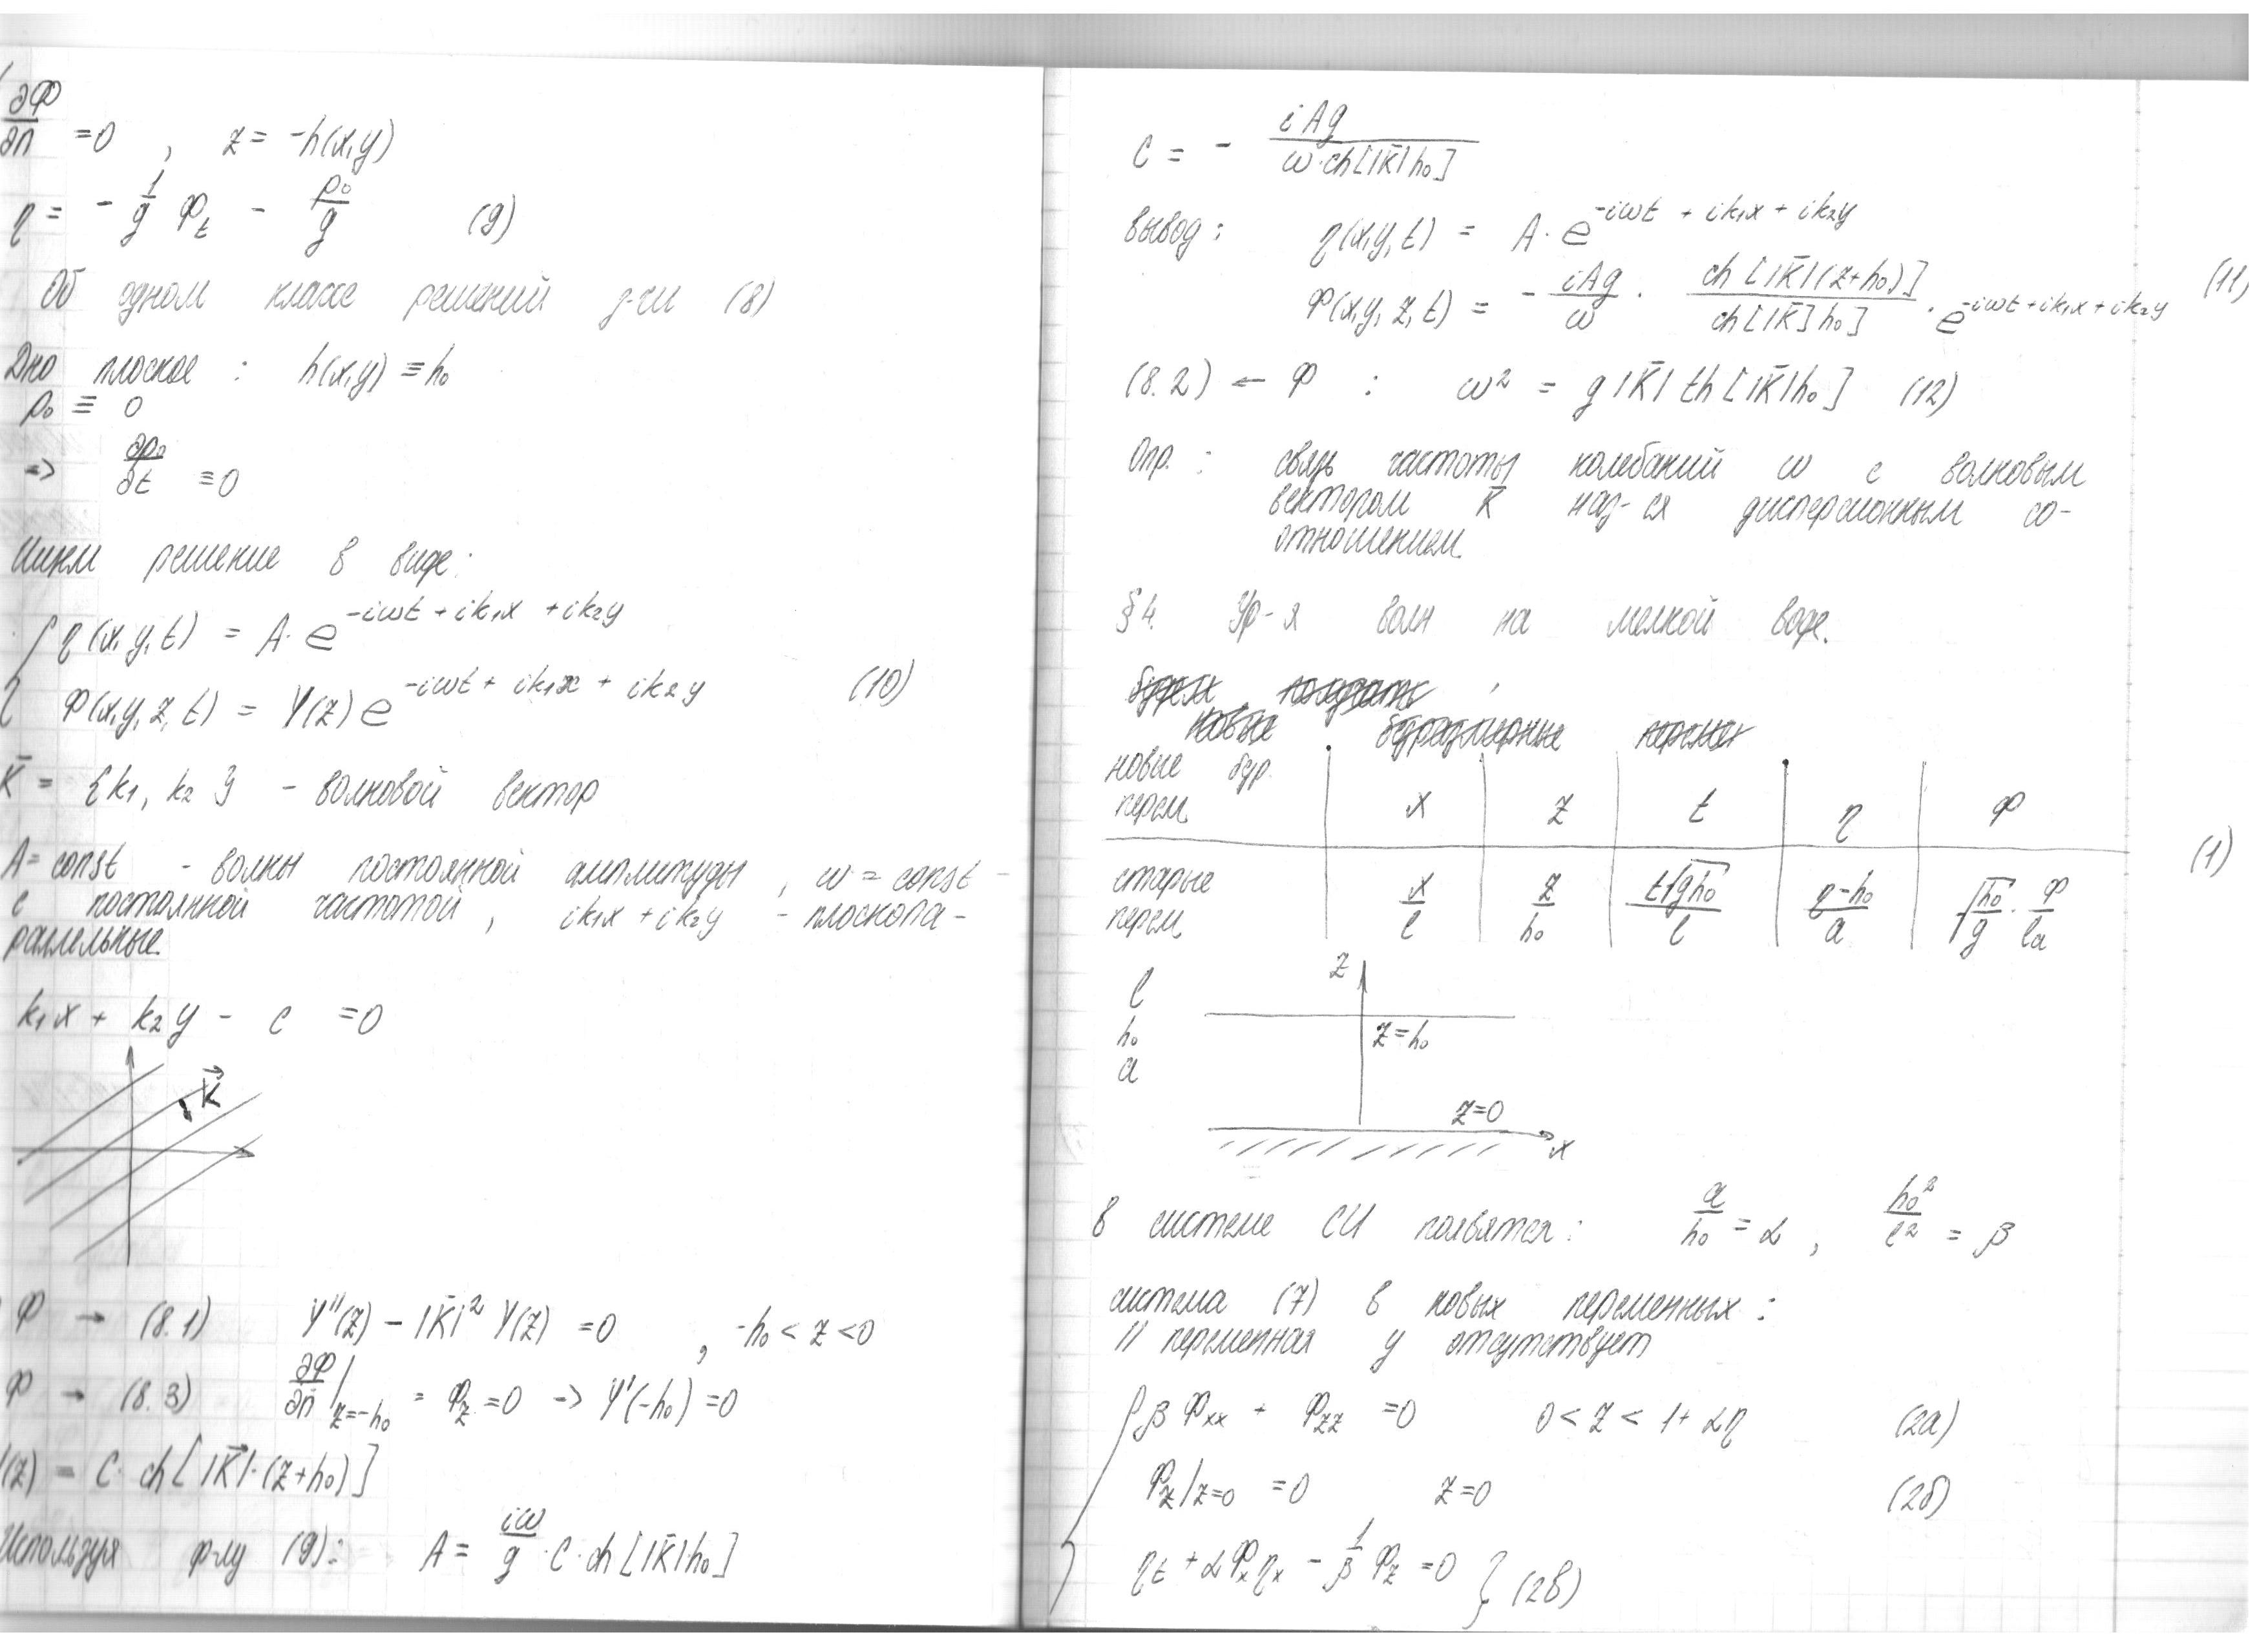 ∂Φ/∂n = 0 , z = -h(x,y)
η = - 1/g Φ_t - p₀/g (9)
Об одном классе решений з-чи (8)
Дно плоское : h(x,y) ≡ h₀
p₀ ≡ 0
=> ∂p₀/∂t ≡ 0
Ищем решение в виде:
η(x,y,t) = A · e^{-iωt + ik₁x + ik₂y}
Φ(x,y,z,t) = Y(z) e^{-iωt + ik₁x + ik₂y} (10)
K̄ = {k₁, k₂} - волновой вектор
A = const - волны постоянной амплитуды, ω = const -
с постоянной частотой, ik₁x + ik₂y - плоскопа-
раллельные.
k₁x + k₂y - c = 0
K⃗
Φ → (8.1) Y''(z) - |K̄|² Y(z) = 0 , -h₀ < z < 0
Φ → (8.3) ∂Φ/∂n |_{z=-h₀} = Φ_z = 0 -> Y'(-h₀) = 0
Y(z) = C · ch[|K⃗|·(z+h₀)]
Используя ф-лу (9): A = iω/g · C · ch[|K̄|·h₀]
C = - iAg / ω·ch[|K̄|h₀]
вывод: η(x,y,t) = A · e^{-iωt + ik₁x + ik₂y}
Φ(x,y,z,t) = - iAg/ω · ch[|K̄|(z+h₀)] / ch[|K̄]h₀] · e^{-iωt + ik₁x + ik₂y} (11)
(8.2) ← Φ : ω² = g|K̄| th[|K̄|h₀] (12)
Опр. : связь частоты колебаний ω с волновым
вектором K̄ наз-ся дисперсионным со-
отношением.
§4. Ур-я волн на мелкой воде.
новые бзр. перем. | x | z | t | η | Φ
старые перем. | x/l | z/h₀ | t√(gh₀)/l | (η-h₀)/a | √(h₀/g) · Φ/la (1)
l
h₀
a
z
z = h₀
z=0
x
в системе СИ появятся: a/h₀ = α , h₀²/l² = β
система (7) в новых переменных:
// переменная y отсутствует
β Φ_xx + Φ_zz = 0 0 < z < 1 + αη (2а)
Φ_z|_{z=0} = 0 z=0 (2б)
η_t + αΦ_x η_x - 1/β Φ_z = 0 } (2в)